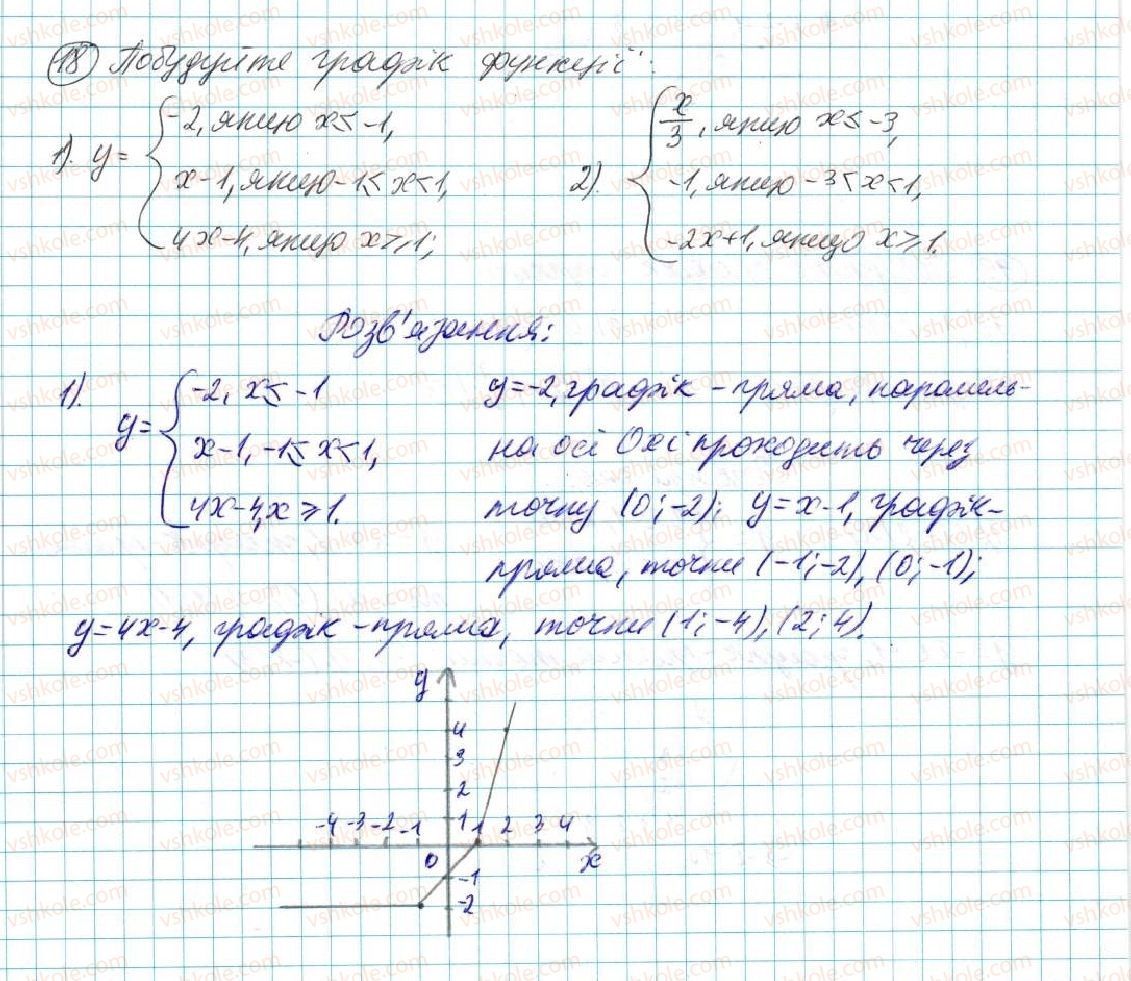 18 Побудуйте графік функції:
1). y = { -2, якщо x ≤ -1,
x-1, якщо -1 < x < 1,
4x-4, якщо x ≥ 1;
2) { x/3, якщо x ≤ -3,
-1, якщо -3 < x < 1,
-2x+1, якщо x ≥ 1.
Розв'язання:
1). y = { -2, x ≤ -1
x-1, -1 ≤ x < 1,
4x-4, x ≥ 1.
y=-2, графік - пряма, паралель-
на осі Ox і проходить через
точку (0;-2); y=x-1, графік-
пряма, точки (-1;-2), (0;-1);
y=4x-4, графік - пряма, точки (1;-4), (2;4).
y
4
3
2
-4 -3 -2 -1 1 1 2 3 4
0 x
-1
-2
vshkole.com